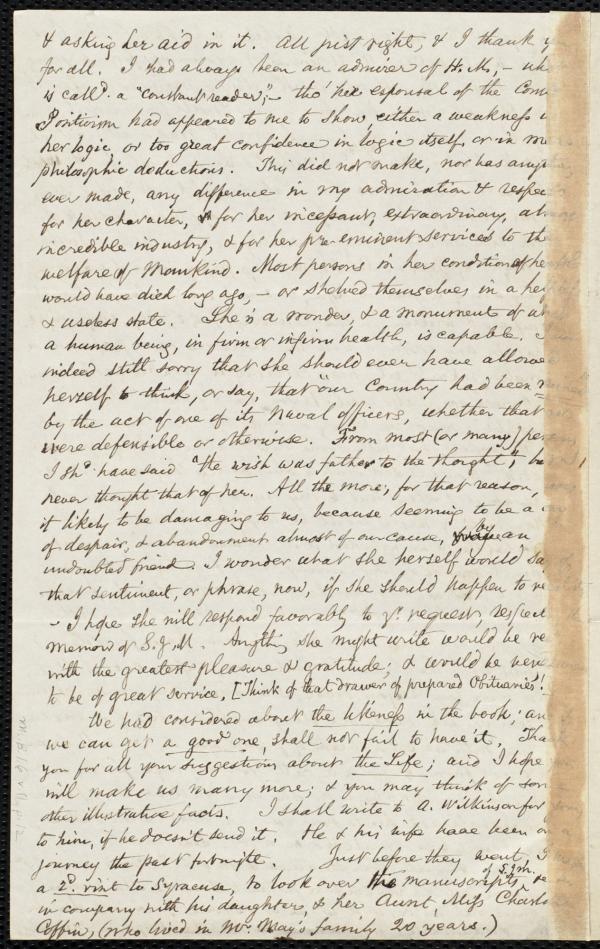 & asking her aid in it. All just right, & I thank
for all. I had always been an admirer of H. M, – wh
is call'd a "constant reader"; – tho' her espousal of the Com
Positivism had appeared to me to show either a weakness
her logic, or too great confidence in logic itself, or in
philosophic deductions. This did not make, nor has any
ever made, any difference in my admiration & respec
for her character, & for her incessant, extraordinary, al
incredible industry, & for her pre-eminent services to th
welfare of Mankind. Most persons in her condition of he
would have died long ago, – or shelved themselves in a he
& useless state. She is a wonder, & a monument of
a human being, in firm or infirm health, is capable.
indeed still sorry that she should ever have allowe
herself to think, or say, that "our Country had been
by the act of one of its Naval officers, whether that
were defensible or otherwise. From most (or many) per
I shd. have said "the wish was father to the thought", bu
never thought that of her. All the more, for that reason,
it likely to be damaging to us, because seeming to be a
of despair, & abandonment almost of our cause, by an
undoubted friend. I wonder what she herself would sa
that sentiment, or phrase, now, if she should happen to re
– I hope she will respond favorably to yr. request, respect
memoir of S. J. M. Anything she might write would be re
with the greatest pleasure & gratitude; & would be very
to be of great service, [Think of that drawer of prepared Obituaries!
We had considered about the likeness in the book; an
we can get a good one, shall not fail to have it. Tha
you for all your suggestions about the Life; and I hope
will make us many more; & you may think of som
other illustrative facts. I shall write to A. Wilkinson for
to him, if he doesn't send it. He & his wife have been on
journey the past fortnight. Just before they went, I
a 2d. visit to Syracuse, to look over the manuscripts of S. J. M.
in company with his daughter, & her Aunt, Miss Charlo
Coffin, (who lived in Mr. May's family 20 years.)